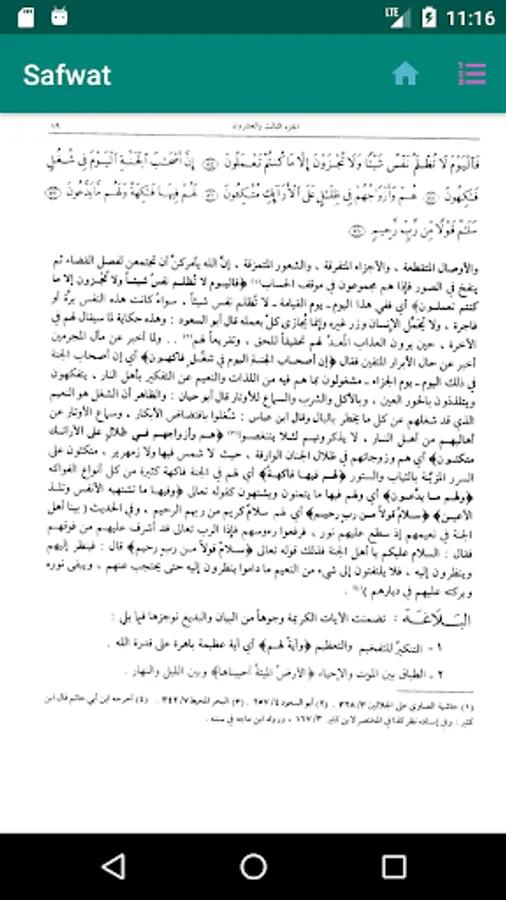 11:16
LTE
Safwat
الجزء الثالث والعشرون
١٩
فَالْيَوْمَ لَا تُظْلَمُ نَفْسٌ شَيْئًا وَلَا تُجْزَوْنَ إِلَّا مَا كُنتُمْ تَعْمَلُونَ ﴿٥٤﴾ إِنَّ أَصْحَابَ الْجَنَّةِ الْيَوْمَ فِي شُغُلٍ
فَاكِهُونَ ﴿٥٥﴾ هُمْ وَأَزْوَاجُهُمْ فِي ظِلَالٍ عَلَى الْأَرَائِكِ مُتَّكِئُونَ ﴿٥٦﴾ لَهُمْ فِيهَا فَاكِهَةٌ وَلَهُم مَّا يَدَّعُونَ ﴿٥٧﴾
سَلَامٌ قَوْلًا مِّن رَّبٍّ رَّحِيمٍ ﴿٥٨﴾
والأوصال المتقطعة ، والأجزاء المتفرقة ، والشعور المتمزقة ، إنّ الله يأمركنّ أن تجتمعن لفصل القضاء ثم
ينفخ في الصور فإذا هم مجموعون في موقف الحساب(١) ﴿فاليوم لا تُظلم نفسٌ شيئاً ولا تُجزون إلا ما
كنتم تعملون﴾ أي ففي هذا اليوم ـ يوم القيامة ـ لا تُظلم نفس شيئاً ، سواءٌ كانت هذه النفس برَّة أو
فاجرة ، ولا يُحمَّل الإِنسان وزر غيره وإنما يُجازى كلٌّ بعمله قال أبو السعود : وهذه حكاية لما سيقال لهم في
الآخرة ، حين يرون العذاب المُعدَّ لهم تحقيقاً للحق ، وتقريعاً لهم(٢) . . ولما أخبر عن مآل المجرمين
أخبر عن حال الأبرار المتقين فقال ﴿إن أصحاب الجنة اليوم في شُغُلٍ فاكهون﴾ أي إن أصحاب الجنة
في ذلك اليوم ـ يوم الجزاء ـ مشغولون بما هم فيه من اللذات والنعيم عن التفكير بأهل النار ، يتفكهون
ويتلذذون بالحور العين ، وبالأكل والشرب والسماع للأوتار قال أبو حيان : والظاهر أن الشغل هو النعيم
الذي قد شغلهم عن كل ما يخطر بالبال وقال ابن عباس : شُغلوا بافتضاض الأبكار ، وسماع الأوتار عن
أهاليهم من أهل النار ، لا يذكرونهم لئلا يتنغصوا(٣) ﴿هم وأزواجهم في ظلالٍ على الأرائك
متكئون﴾ أي هم وزوجاتهم في ظلال الجنان الوارفة ، حيث لا شمس فيها ولا زمهرير ، متكئون على
السرر المزيَّنة بالثياب والستور ﴿لهم فيها فاكهة﴾ أي لهم في الجنة فاكهة كثيرة من كل أنواع الفواكه
﴿ولهم ما يدَّعون﴾ أي ولهم فيها ما يتمنون ويشتهون كقوله تعالى ﴿وفيها ما تشتهيه الأنفس وتلذ
الأعين﴾ ﴿سلامٌ قولاً من ربٍ رحيم﴾ أي لهم سلام كريم من ربهم الرحيم ، وفي الحديث ( بينا أهل
الجنة في نعيمهم إذ سطع عليهم نور ، فرفعوا رءوسهم فإذا الرب تعالى قد أشرف عليهم من فوقهم
فقال : السلام عليكم يا أهل الجنة فذلك قوله تعالى ﴿سلامٌ قولاً من رب رحيم﴾ قال : فينظر إليهم
وينظرون إليه ، فلا يلتفتون إلى شيء من النعيم ما داموا ينظرون إليه حتى يحتجب عنهم ، ويبقى نوره
وبركته عليهم في ديارهم )(٤) .
البَلاغَة : تضمنت الآيات الكريمة وجوهاً من البيان والبديع نوجزها فيما يلي :
١ ـ التنكير للتفخيم والتعظيم ﴿وآيةٌ لهم﴾ أي آية عظيمة باهرة على قدرة الله .
٢ ـ الطباق بين الموت والإِحياء ﴿الأرضُ الميتةُ أحييناها﴾ وبين الليل والنهار .
(١) حاشية الصاوي على الجلالين ٣٢٨/٣ . (٢) أبو السعود ٢٥٧/٤ . (٣) البحر المحيط ٣٤٢/٧ . (٤) أخرجه ابن أبي حاتم قال ابن
كثير : وفي إسناده نظر كذا في المختصر لابن كثير ١٦٧/٣ ، ورواه ابن ماجه في سننه .